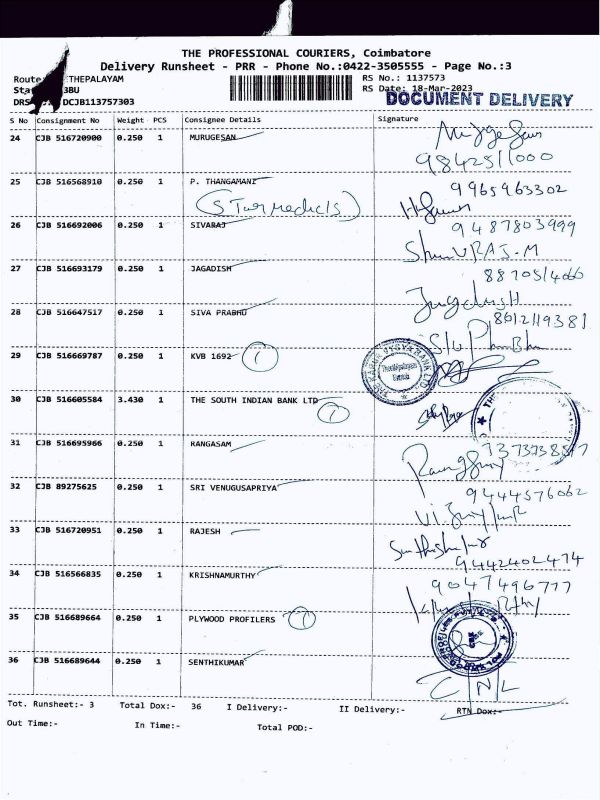 THE PROFESSIONAL COURIERS, Coimbatore
Delivery Runsheet - PRR - Phone No.:0422-3505555 - Page No.:3
THEPALAYAM RS No.: 1137573
3BU RS Date: 18-Mar-2023
DRS DCJB113757303 DOCUMENT DELIVERY
S No Consignment No Weight PCS Consignee Details Signature
24 CJB 516720900 0.250 1 MURUGESAN
9842511000
25 CJB 516568910 0.250 1 P. THANGAMANI 9965963302
(STAR medicls)
26 CJB 516692006 0.250 1 SIVARAJ 9487803999
27 CJB 516693179 0.250 1 JAGADISH
Jagadish
28 CJB 516647517 0.250 1 SIVA PRABHU
29 CJB 516669787 0.250 1 KVB 1692 (1)
THE KARUR VYSYA BANK LTD
30 CJB 516605584 3.430 1 THE SOUTH INDIAN BANK LTD (1)
31 CJB 516695966 0.250 1 RANGASAM
32 CJB 89275625 0.250 1 SRI VENUGUSAPRIYA 9444576062
33 CJB 516720951 0.250 1 RAJESH
9442402474
34 CJB 516566835 0.250 1 KRISHNAMURTHY 9047496777
35 CJB 516689664 0.250 1 PLYWOOD PROFILERS (1)
36 CJB 516689644 0.250 1 SENTHIKUMAR
CNL
Tot. Runsheet:- 3 Total Dox:- 36 I Delivery:- II Delivery:- RTN Dox:-
Out Time:- In Time:- Total POD:-